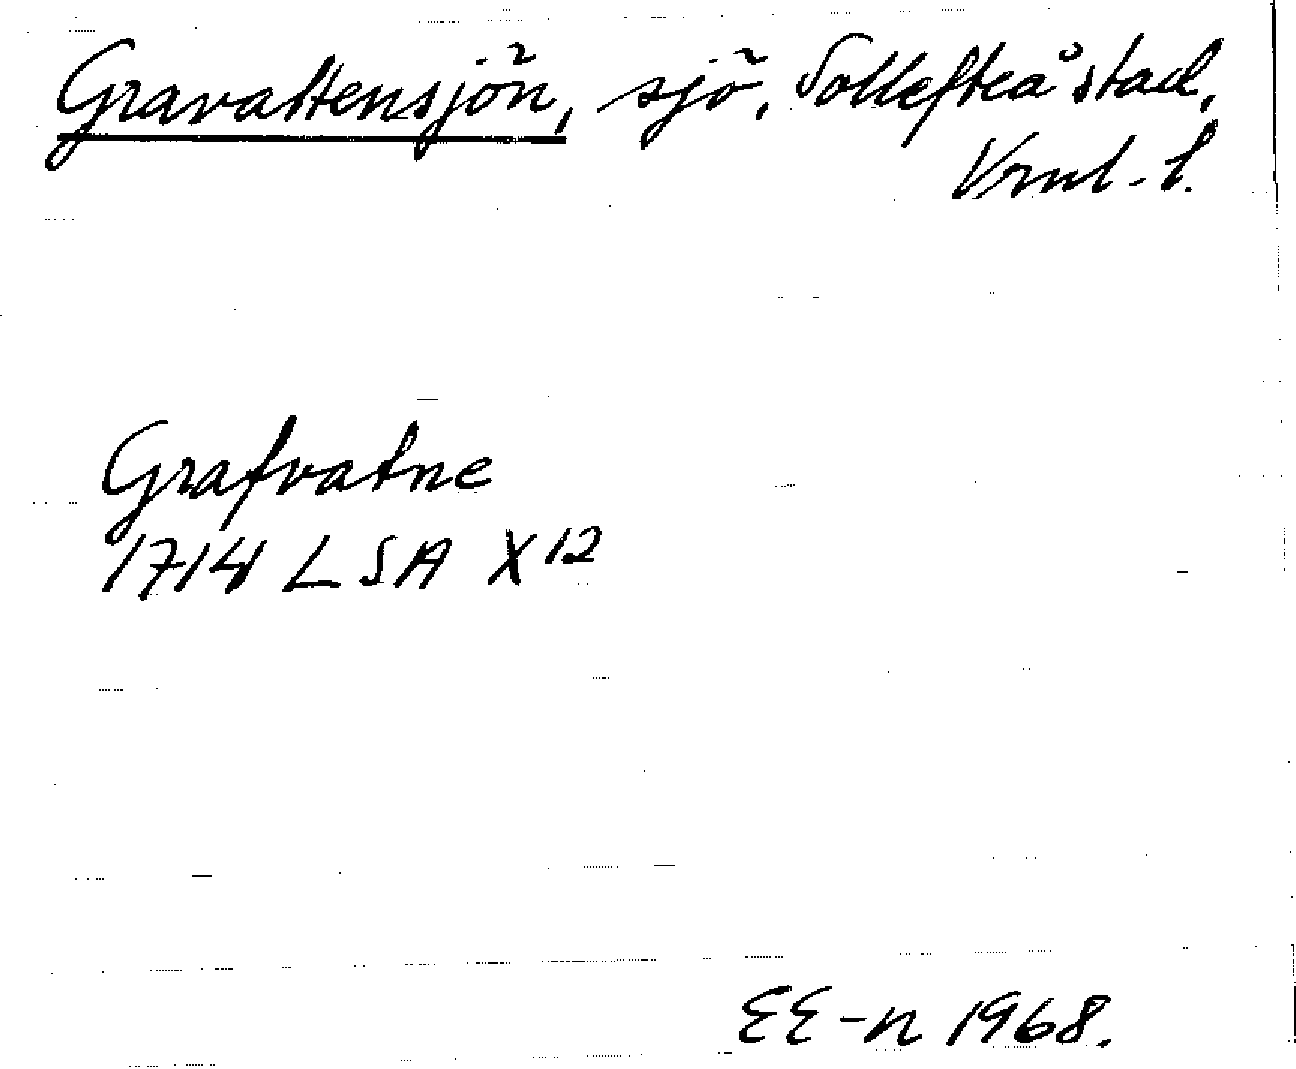 Gravattensjön, sjö, Sollefteå stad,
Vrnl. l.
Grafvatne
1714 LSA X 12
EE-n 1968.